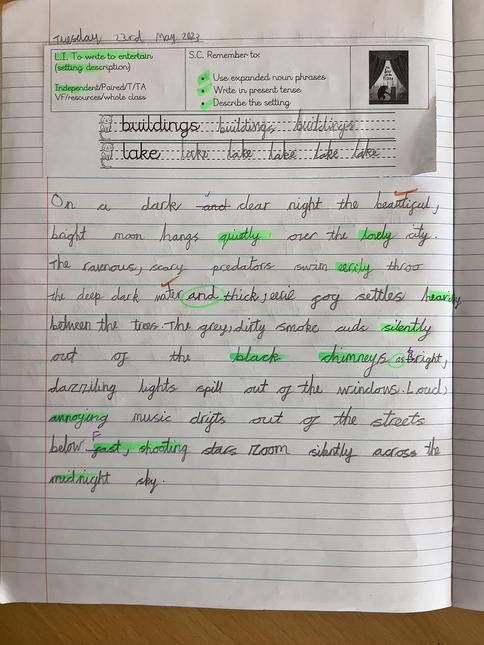 Tuesday 23rd May 2023
L.I. To write to entertain
(setting description)
Independent/Paired/T/TA
VF/resources/whole class
S.C. Remember to:
Use expanded noun phrases
Write in present tense
Describe the setting
buildings buildings buildings
lake lake lake lake lake lake
On a dark and clear night the beautiful,
bright moon hangs quietly over the lovely city.
The ravenous, scary predators swim eerily throo
the deep dark water and thick, eerie gog settles heavily
between the trees. The grey, dirty smoke suds silently
out of the black chimneys as bright,
dazziling lights spill out of the windows. Loud,
annoying music drifts out of the streets
below. Fast, shooting stars zoom silently across the
midnight sky.